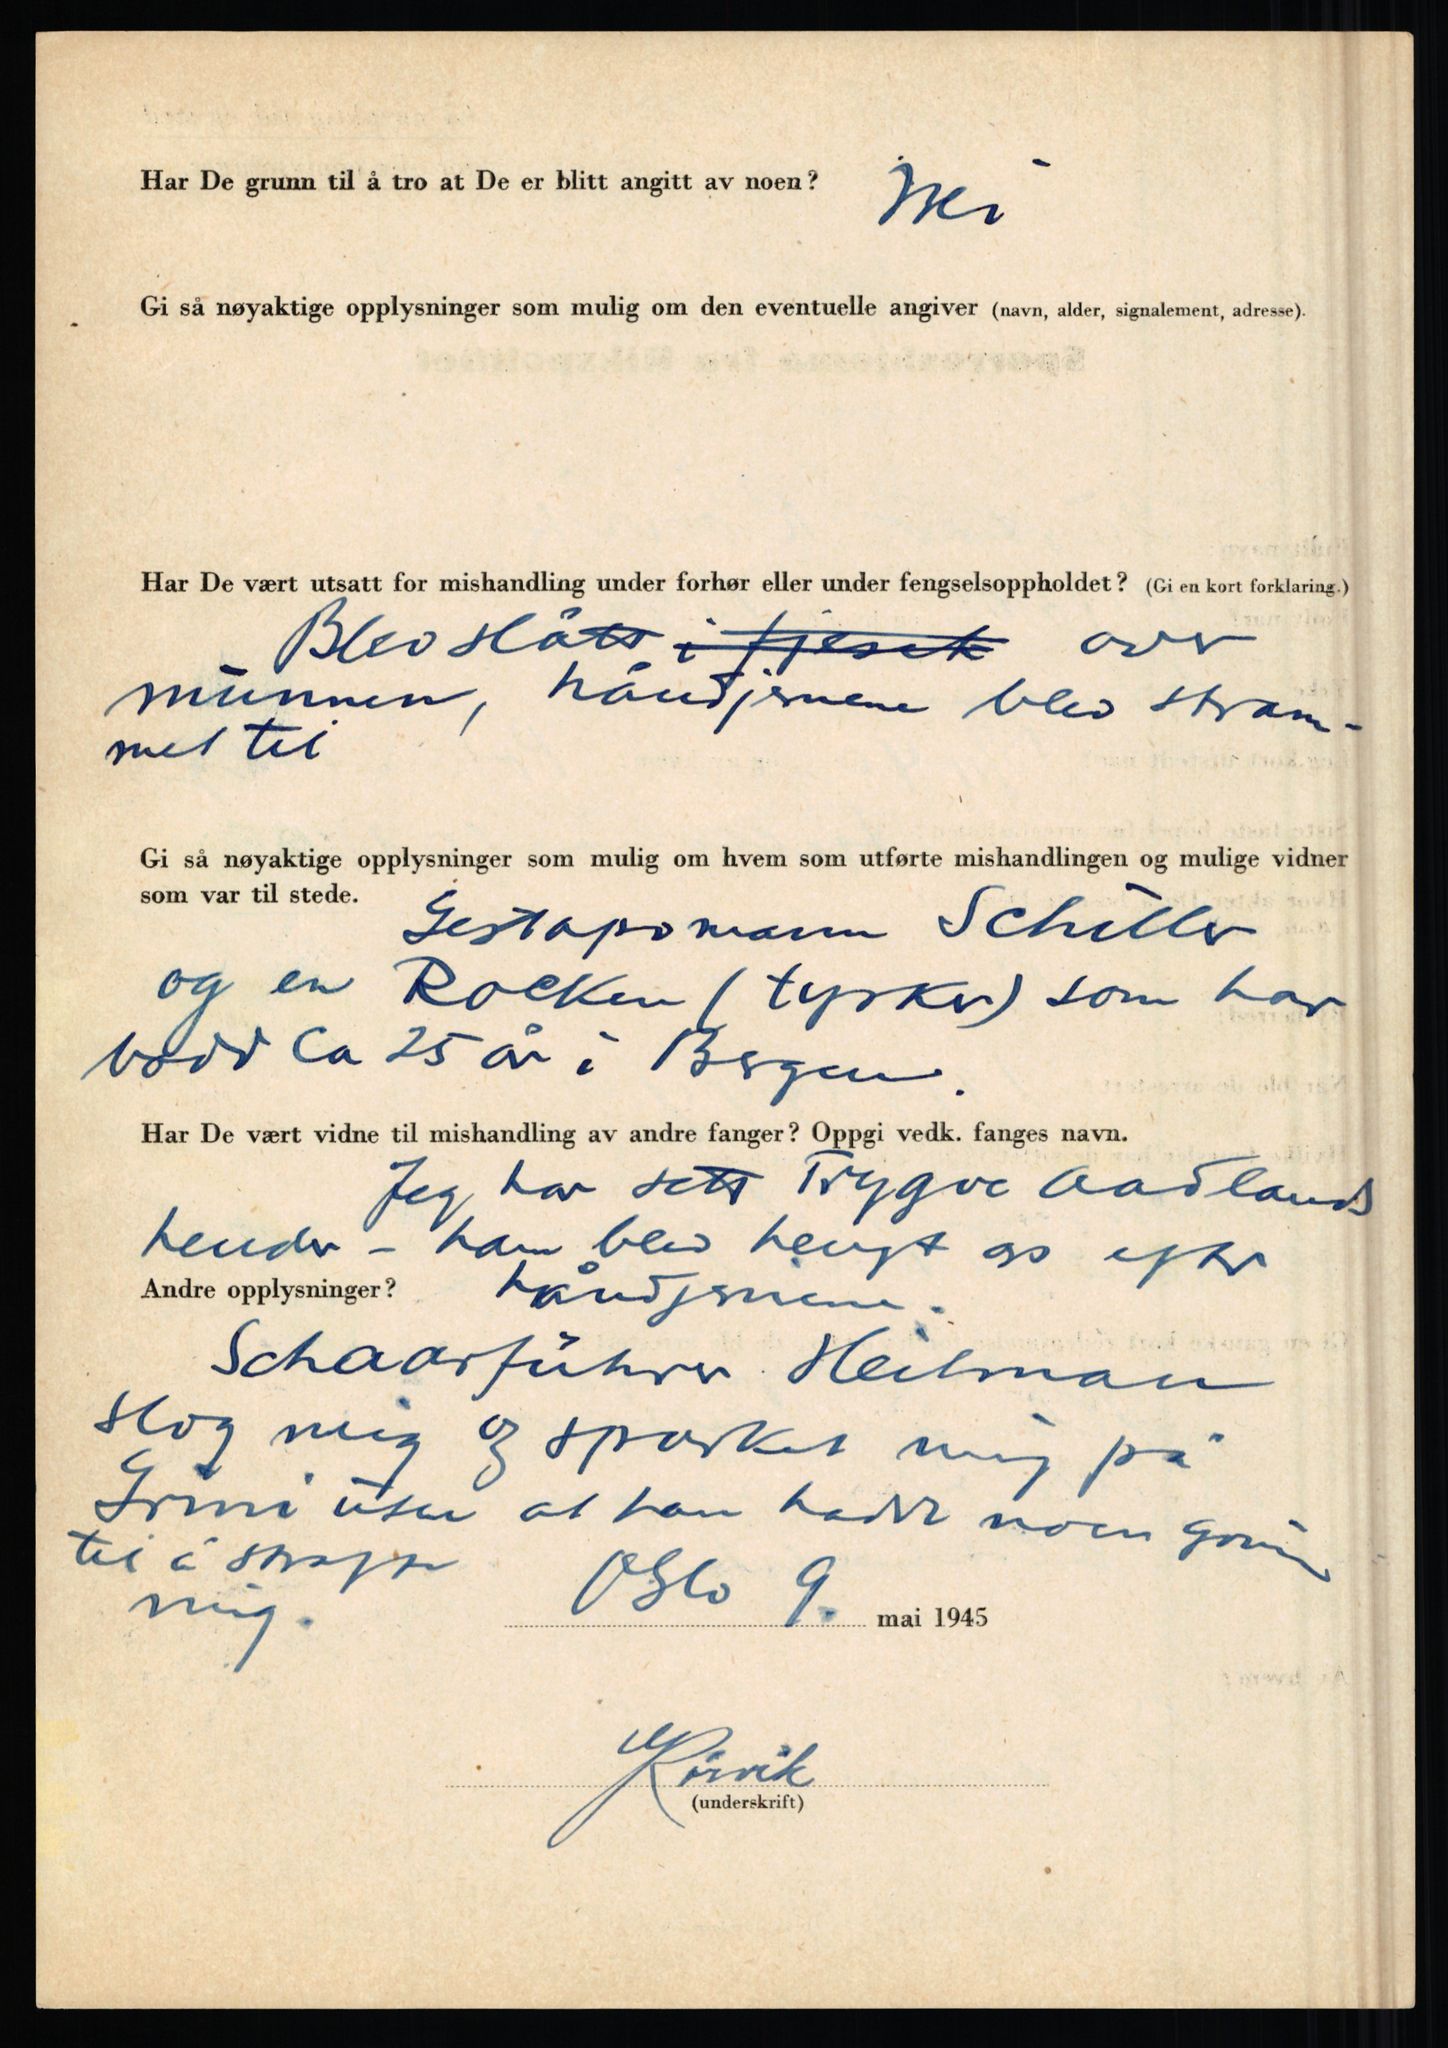 Har De grunn til å tro at De er blitt angitt av noen? Nei
Gi så nøyaktige opplysninger som mulig om den eventuelle angiver (navn, alder, signalement, adresse).
Har De vært utsatt for mishandling under forhør eller under fengselsoppholdet? (Gi en kort forklaring.)
Blev slått i fjeset over
munnen, håndjernene blev stram-
met til
Gi så nøyaktige opplysninger som mulig om hvem som utførte mishandlingen og mulige vidner
som var til stede.
Gestapomann Schiller
og en Rocken (tysker) som har
bodd ca 25 år i Bergen.
Har De vært vidne til mishandling av andre fanger? Oppgi vedk. fanges navn.
Jeg har sett Trygve Aadlands
hender - han blev hengt op efter
Andre opplysninger? håndjernene.
Schaarführer Heilman
slog mig og sparket mig på
Grini uten at han hadde noen grunn
til å straffe
mig.
Oslo 9. mai 1945
Rørvik
(underskrift)